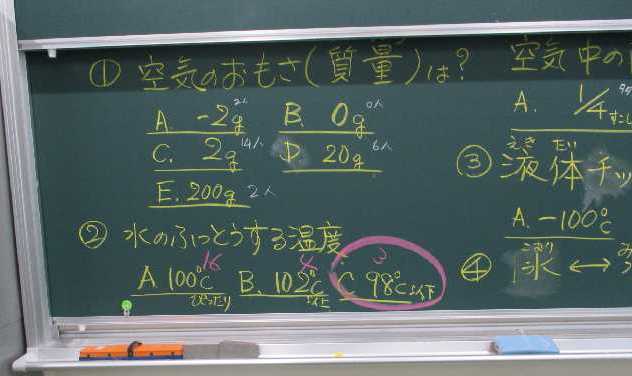 ① 空気のおもさ(質量)は?
A. -2g 2人 B. 0g 0人
C. 2g 14人 D. 20g 6人
E. 200g 2人
② 水のふっとうする温度
A 100℃ 16 B. 102℃ 4 C 98℃以下 3
ぴったり 以上
空気中の
A. 1/4
③ 液体チッ
えき たい
A. -100℃
④ 氷 ↔
こおり